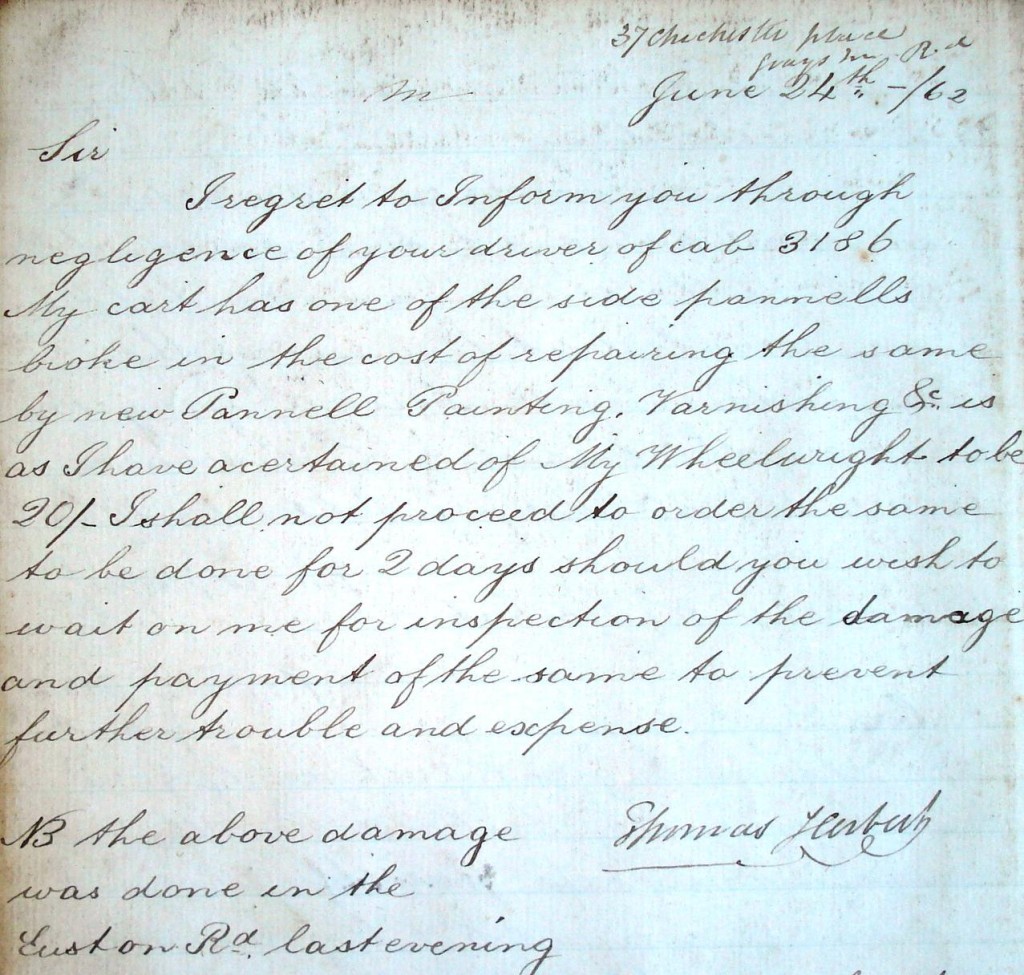 37 Chichester place
Grays Inn Rd
M
June 24th -/62
Sir
I regret to Inform you through
negligence of your driver of cab 3186
My cart has one of the side pannells
broke in the cost of repairing the same
by new Pannell Painting. Varnishing &c. is
as I have acertained of My Wheelwright to be
20/- I shall not proceed to order the same
to be done for 2 days should you wish to
wait on me for inspection of the damage
and payment of the same to prevent
further trouble and expense.
Thomas Herbert
NB the above damage
was done in the
Euston Rd. last evening